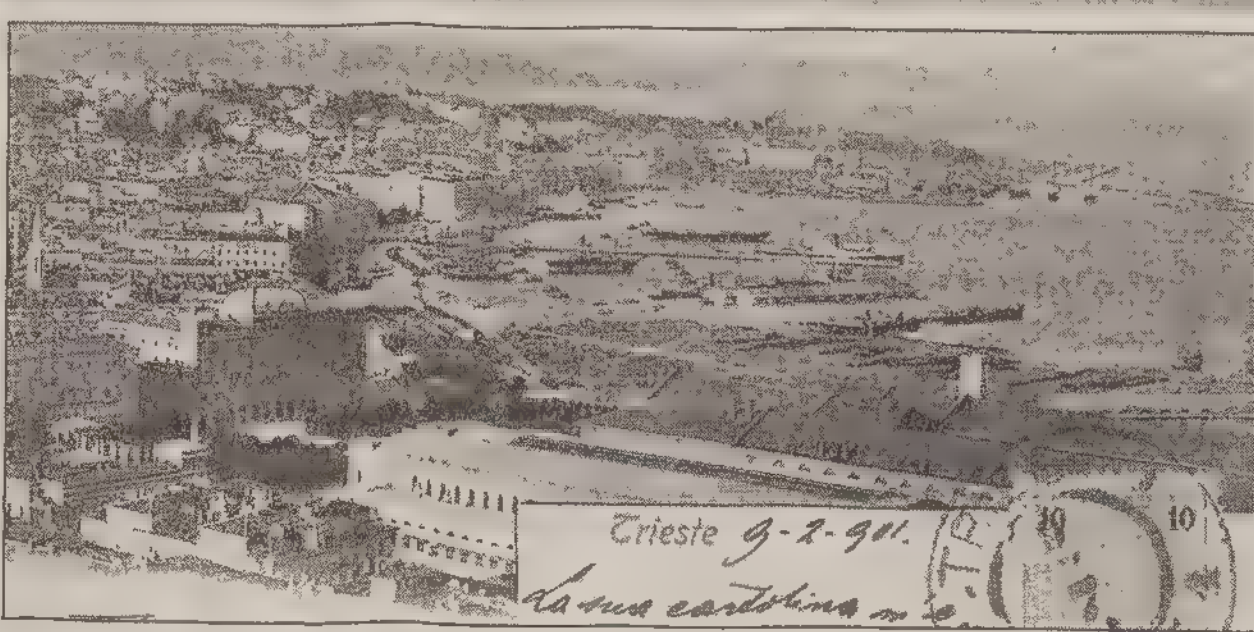 Trieste 9-2-901.
La sua cartolina m
TR
10 10